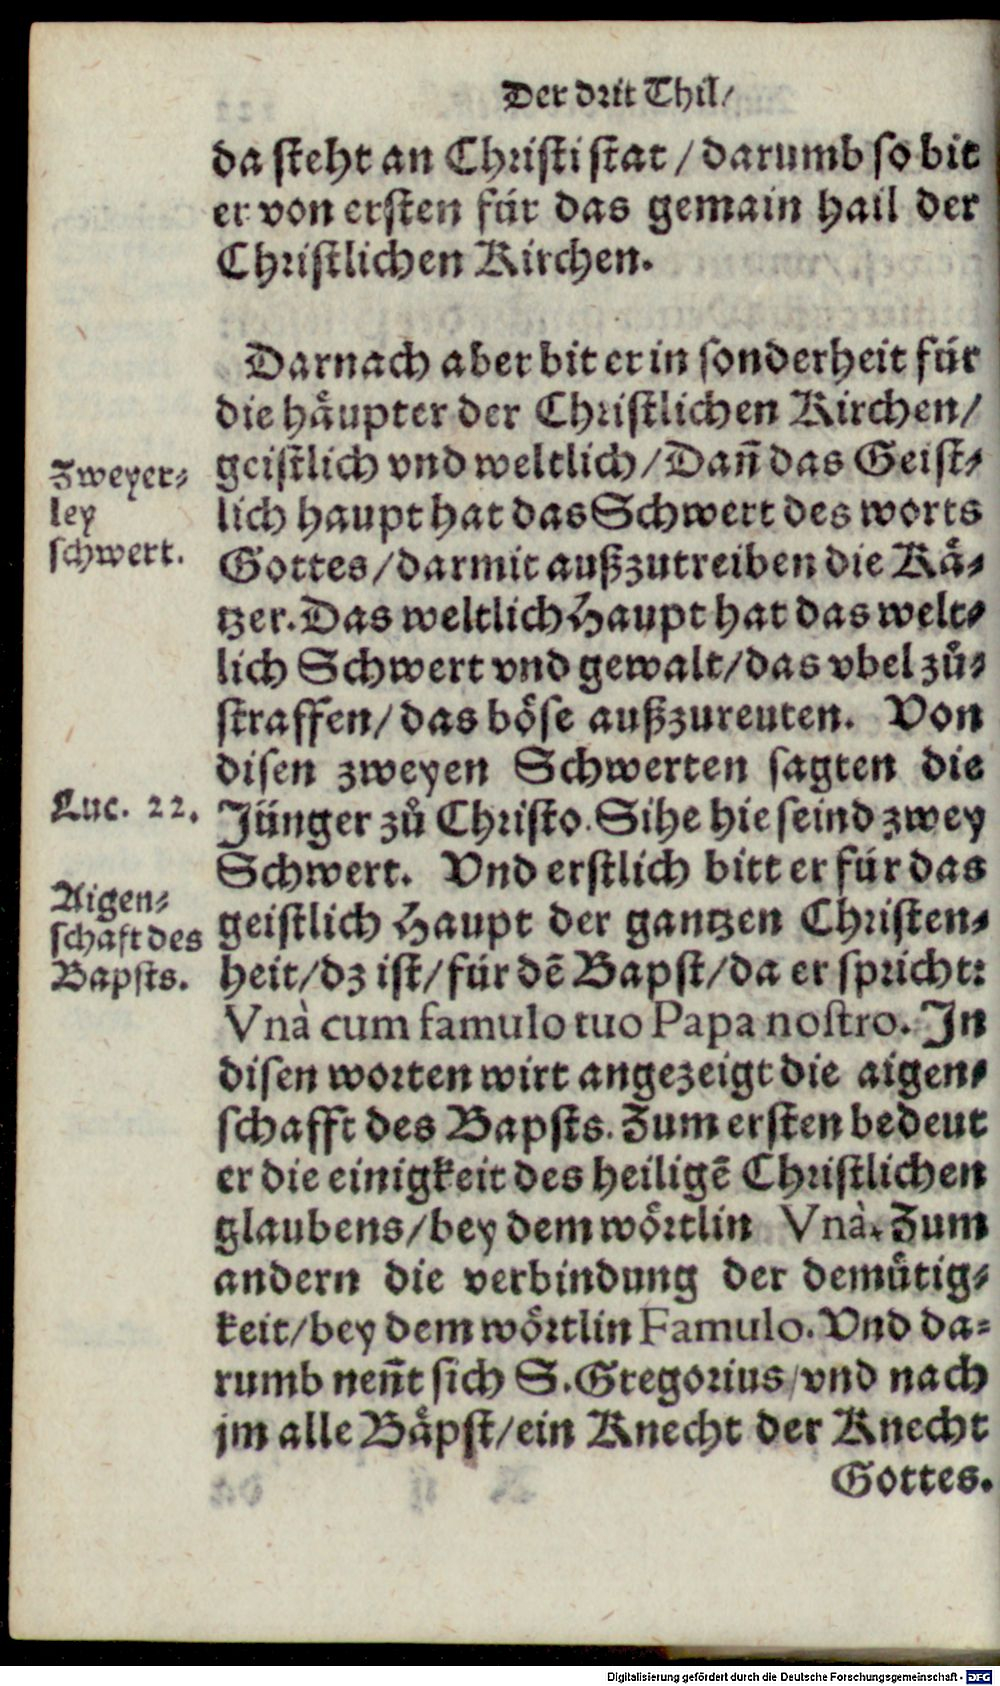 Der drit Thil/
da steht an Christi stat / darumb so bit
er von ersten für das gemain hail der
Christlichen Kirchen.
Darnach aber bit er in sonderheit für
die häupter der Christlichen Kirchen/
geistlich vnd weltlich/Dañ das Geist-
lich haupt hat das Schwert des worts
Gottes/darmit außzutreiben die Kä-
tzer. Das weltlich Haupt hat das welt-
lich Schwert vnd gewalt/das vbel zů-
straffen/das böse außzureuten. Von
disen zweyen Schwerten sagten die
Jünger zů Christo. Sihe hie seind zwey
Schwert. Vnd erstlich bitt er für das
geistlich Haupt der gantzen Christen-
heit/dz ist/für dē Bapst/da er spricht:
Vnà cum famulo tuo Papa nostro. In
disen worten wirt angezeigt die aigen-
schafft des Bapsts. Zum ersten bedeut
er die einigkeit des heiligē Christlichen
glaubens/bey dem wörtlin Vnà. Zum
andern die verbindung der demütig-
keit/bey dem wörtlin Famulo. Vnd da-
rumb neñt sich S. Gregorius/vnd nach
jm alle Bäpst/ein Knecht der Knecht
Gottes.
Zweyer-
ley
schwert.
Luc. 22.
Aigen-
schaft des
Bapsts.
Digitalisierung gefördert durch die Deutsche Forschungsgemeinschaft - DFG